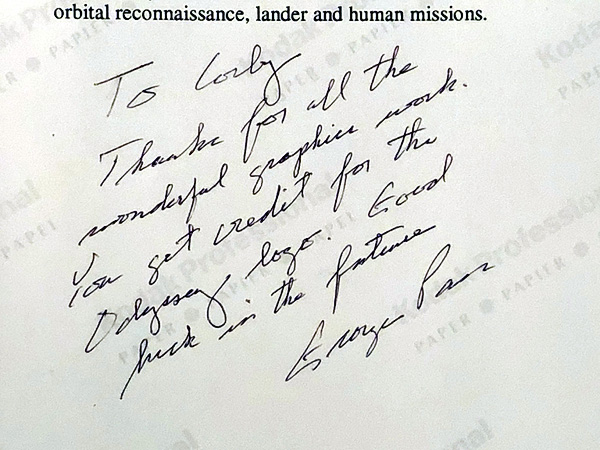 orbital reconnaissance, lander and human missions.
To Corby
Thanks for all the
wonderful graphics work.
You get credit for the
Odyssey logo. Good
luck in the future
George
Kodak Professional
PAPER PAPIER